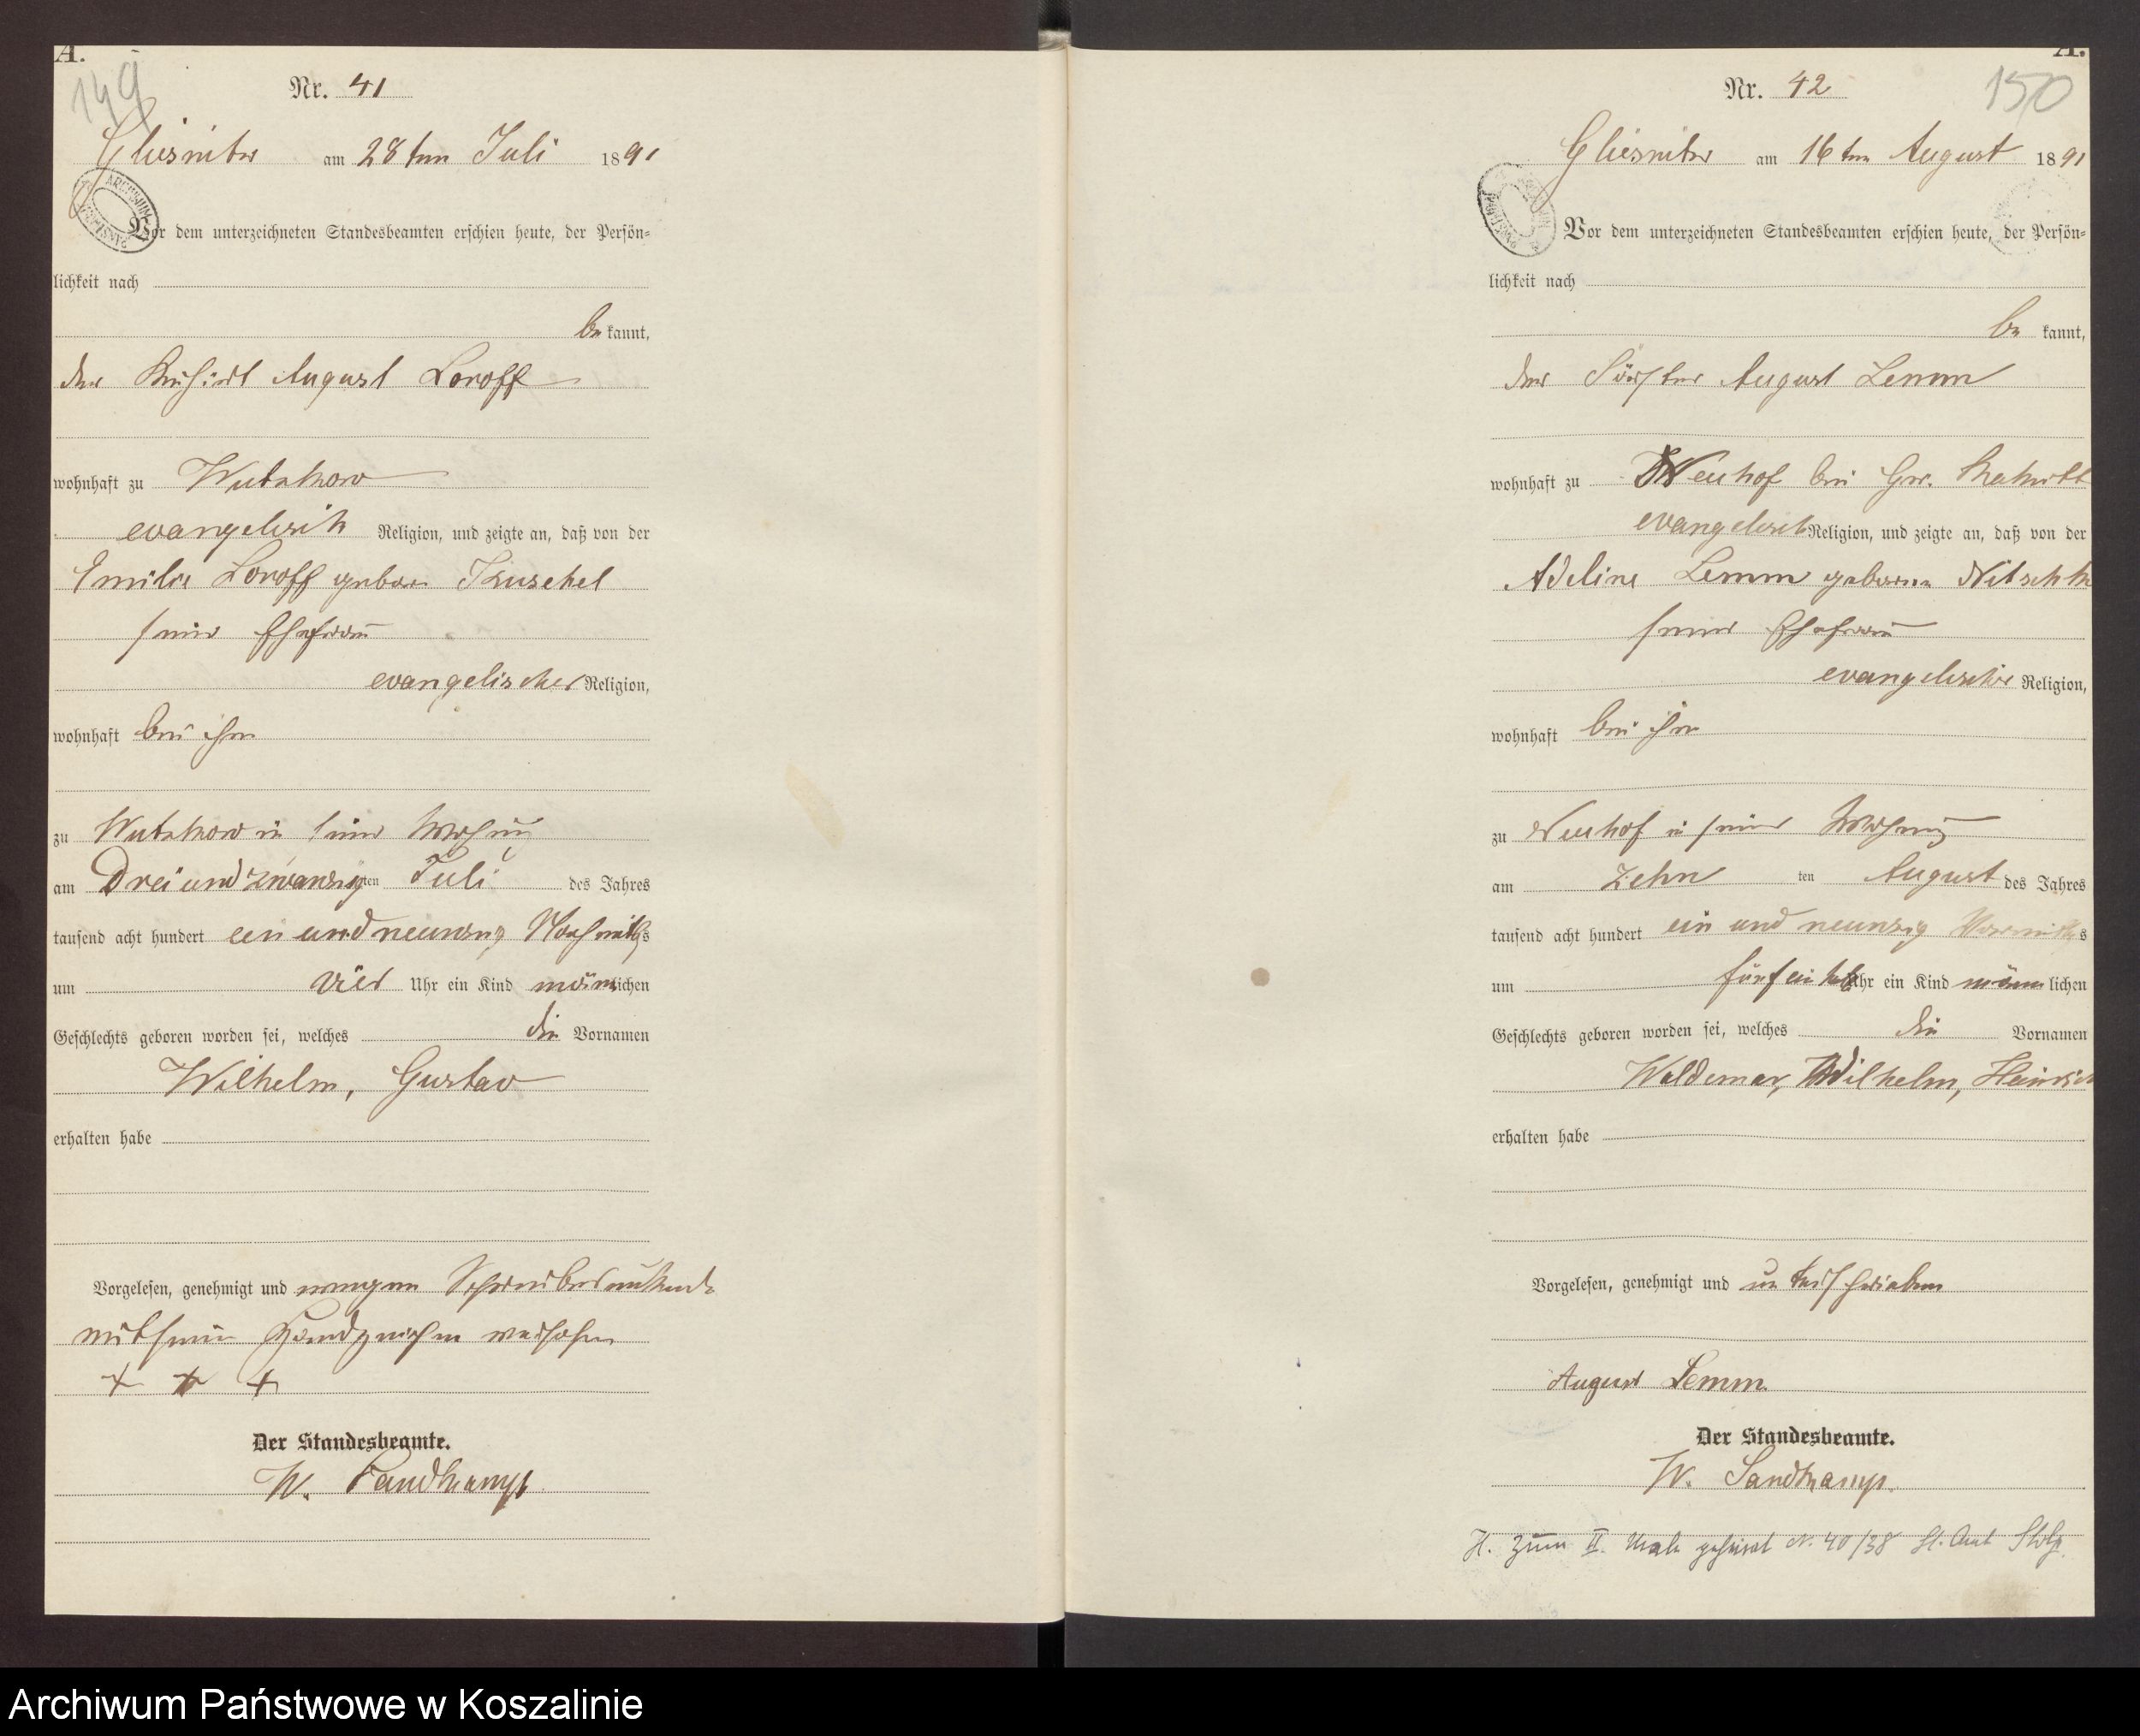 A.
149
Nr. 41
Gliesnitz am 28ten Juli 1891
Vor dem unterzeichneten Standesbeamten erschien heute, der Persön=
lichkeit nach
be kannt,
der Kuhhirt August Loroff
wohnhaft zu Wutzkow
evangelisch Religion, und zeigte an, daß von der
Emilie Loroff geboren Kuschel
seiner Ehefrau
evangelischer Religion,
wohnhaft bei ihm
zu Wutzkow in seiner Wohnung
am Dreiundzwanzigten Juli des Jahres
tausend acht hundert ein und neunzig Nachmittags
um vier Uhr ein Kind männlichen
Geschlechts geboren worden sei, welches die Vornamen
Wilhelm, Gustav
erhalten habe
Vorgelesen, genehmigt und wegen Schreibensunkunde
mit seinem Handzeichen versehen
+ + +
Der Standesbeamte.
W. Sandkamp
A.
150
Nr. 42
Gliesnitz am 16ten August 1891
Vor dem unterzeichneten Standesbeamten erschien heute, der Persön=
lichkeit nach
be kannt,
der Förster August Lemm
wohnhaft zu Neuhof bei Gr.
evangelisch Religion, und zeigte an, daß von der
Adeline Lemm geborenen Nitschke
seiner Ehefrau
evangelischer Religion,
wohnhaft bei ihm
zu Neuhof in seiner Wohnung
am Zehn ten August des Jahres
tausend acht hundert ein und neunzig Vormittags
um fünf ein halb Uhr ein Kind männ lichen
Geschlechts geboren worden sei, welches die Vornamen
Waldemar, Wilhelm, Heinrich
erhalten habe
Vorgelesen, genehmigt und unterschrieben
August Lemm
Der Standesbeamte.
W. Sandkamp.
H. zum II. Male geheirat N. 40/38 St. Amt Stolp
Archiwum Państwowe w Koszalinie